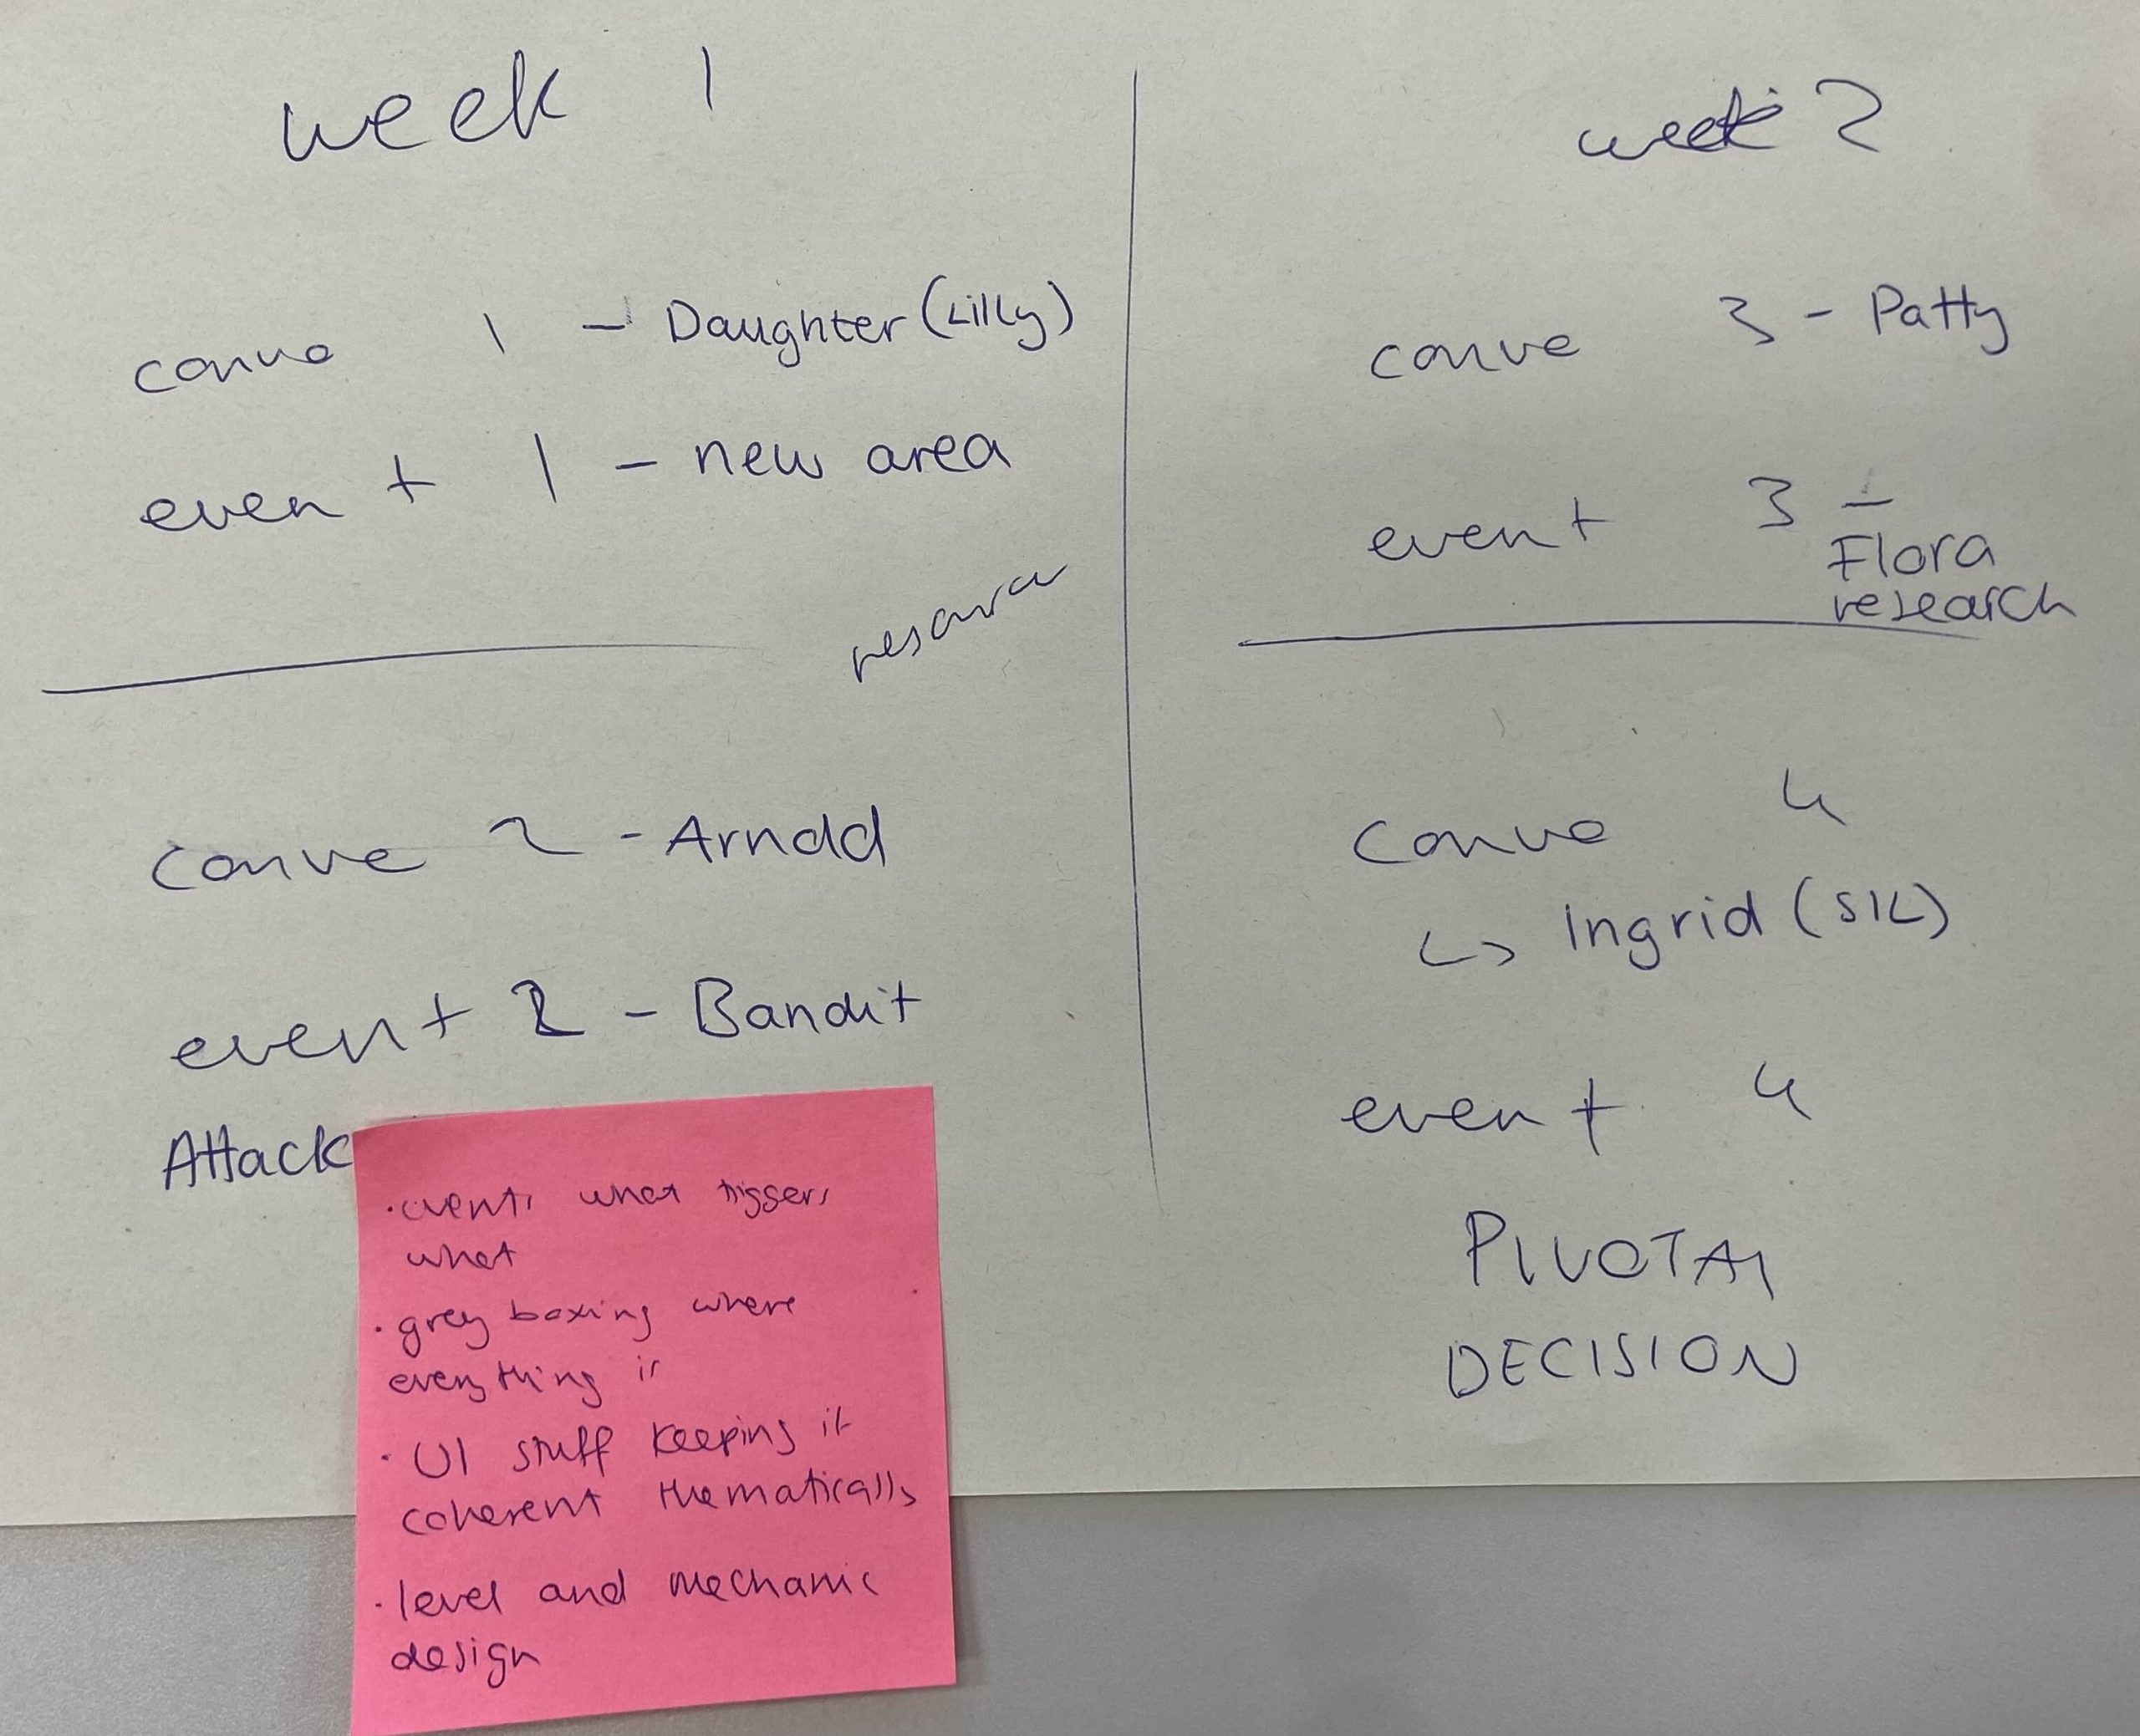 week 1
conve 1 - Daughter (Lilly)
event 1 - new area
conve 2 - Arnold
event 2 - Bandit
Attack
week 2
conve 3 - Patty
event 3 -
Flora
research
conve 4
↳ Ingrid (SIL)
event 4
PIVOTAL
DECISION
• events what triggers
what
• grey boxing where
everything is
• UI stuff keeping it
coherent thematically
• level and mechanic
design